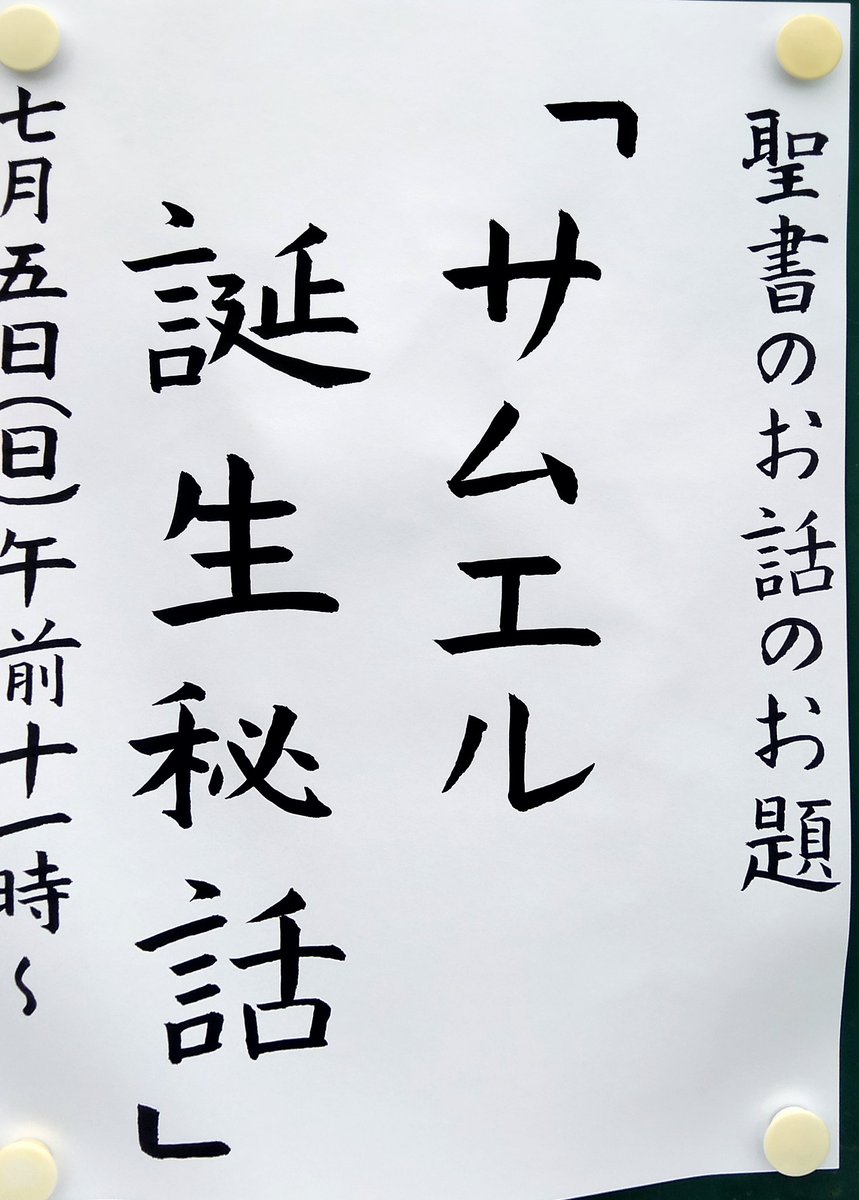 聖書のお話のお題
「サムエル
誕生秘話」
七月五日(日)午前十一時～